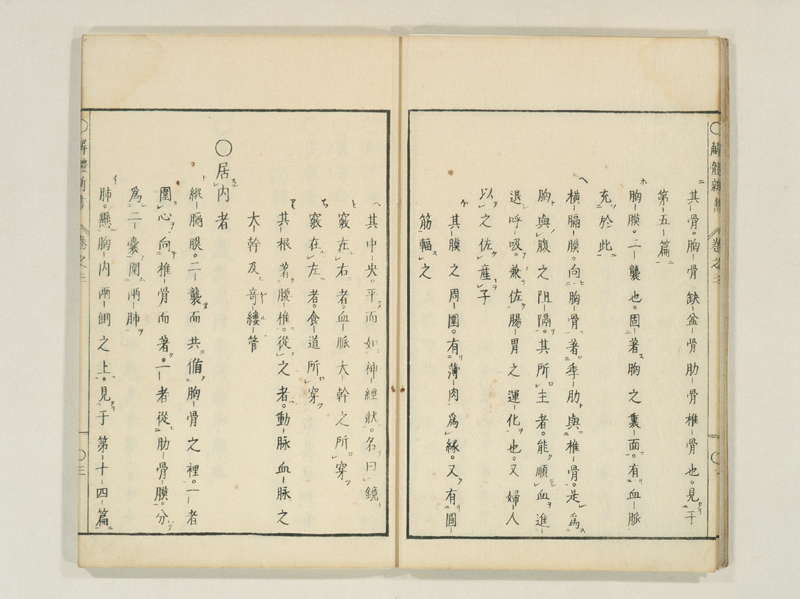 其骨。胸骨缺盆骨肋骨椎骨也。見于
第五篇
胸膜。二襲也。固著胸之裏面。有血脈
充於此
横膈膜。向胸骨。著季肋與椎骨。是為
胸與腹之阻隔。其所主者。能順血進
退呼吸。兼佐腸胃之運化也。又婦人
以之佐産子
其膜之周圍。有薄肉為縁。又有圓
筋輻之
其中央。平而如神經狀。名曰鏡
竅在右者。血脈大幹之所穿
竅在左者。食道所穿
其根著腰椎。從之者。動脈血脈之
大幹及奇縷管
○居内者
縱膈膜。二襲而共循胸骨之裡。一者
圍心。向椎骨而著。一者從肋骨膜。分
為二嚢。圍兩肺
肺。懸胸内兩側之上。見于第十四篇
解體新書
卷之三
○三